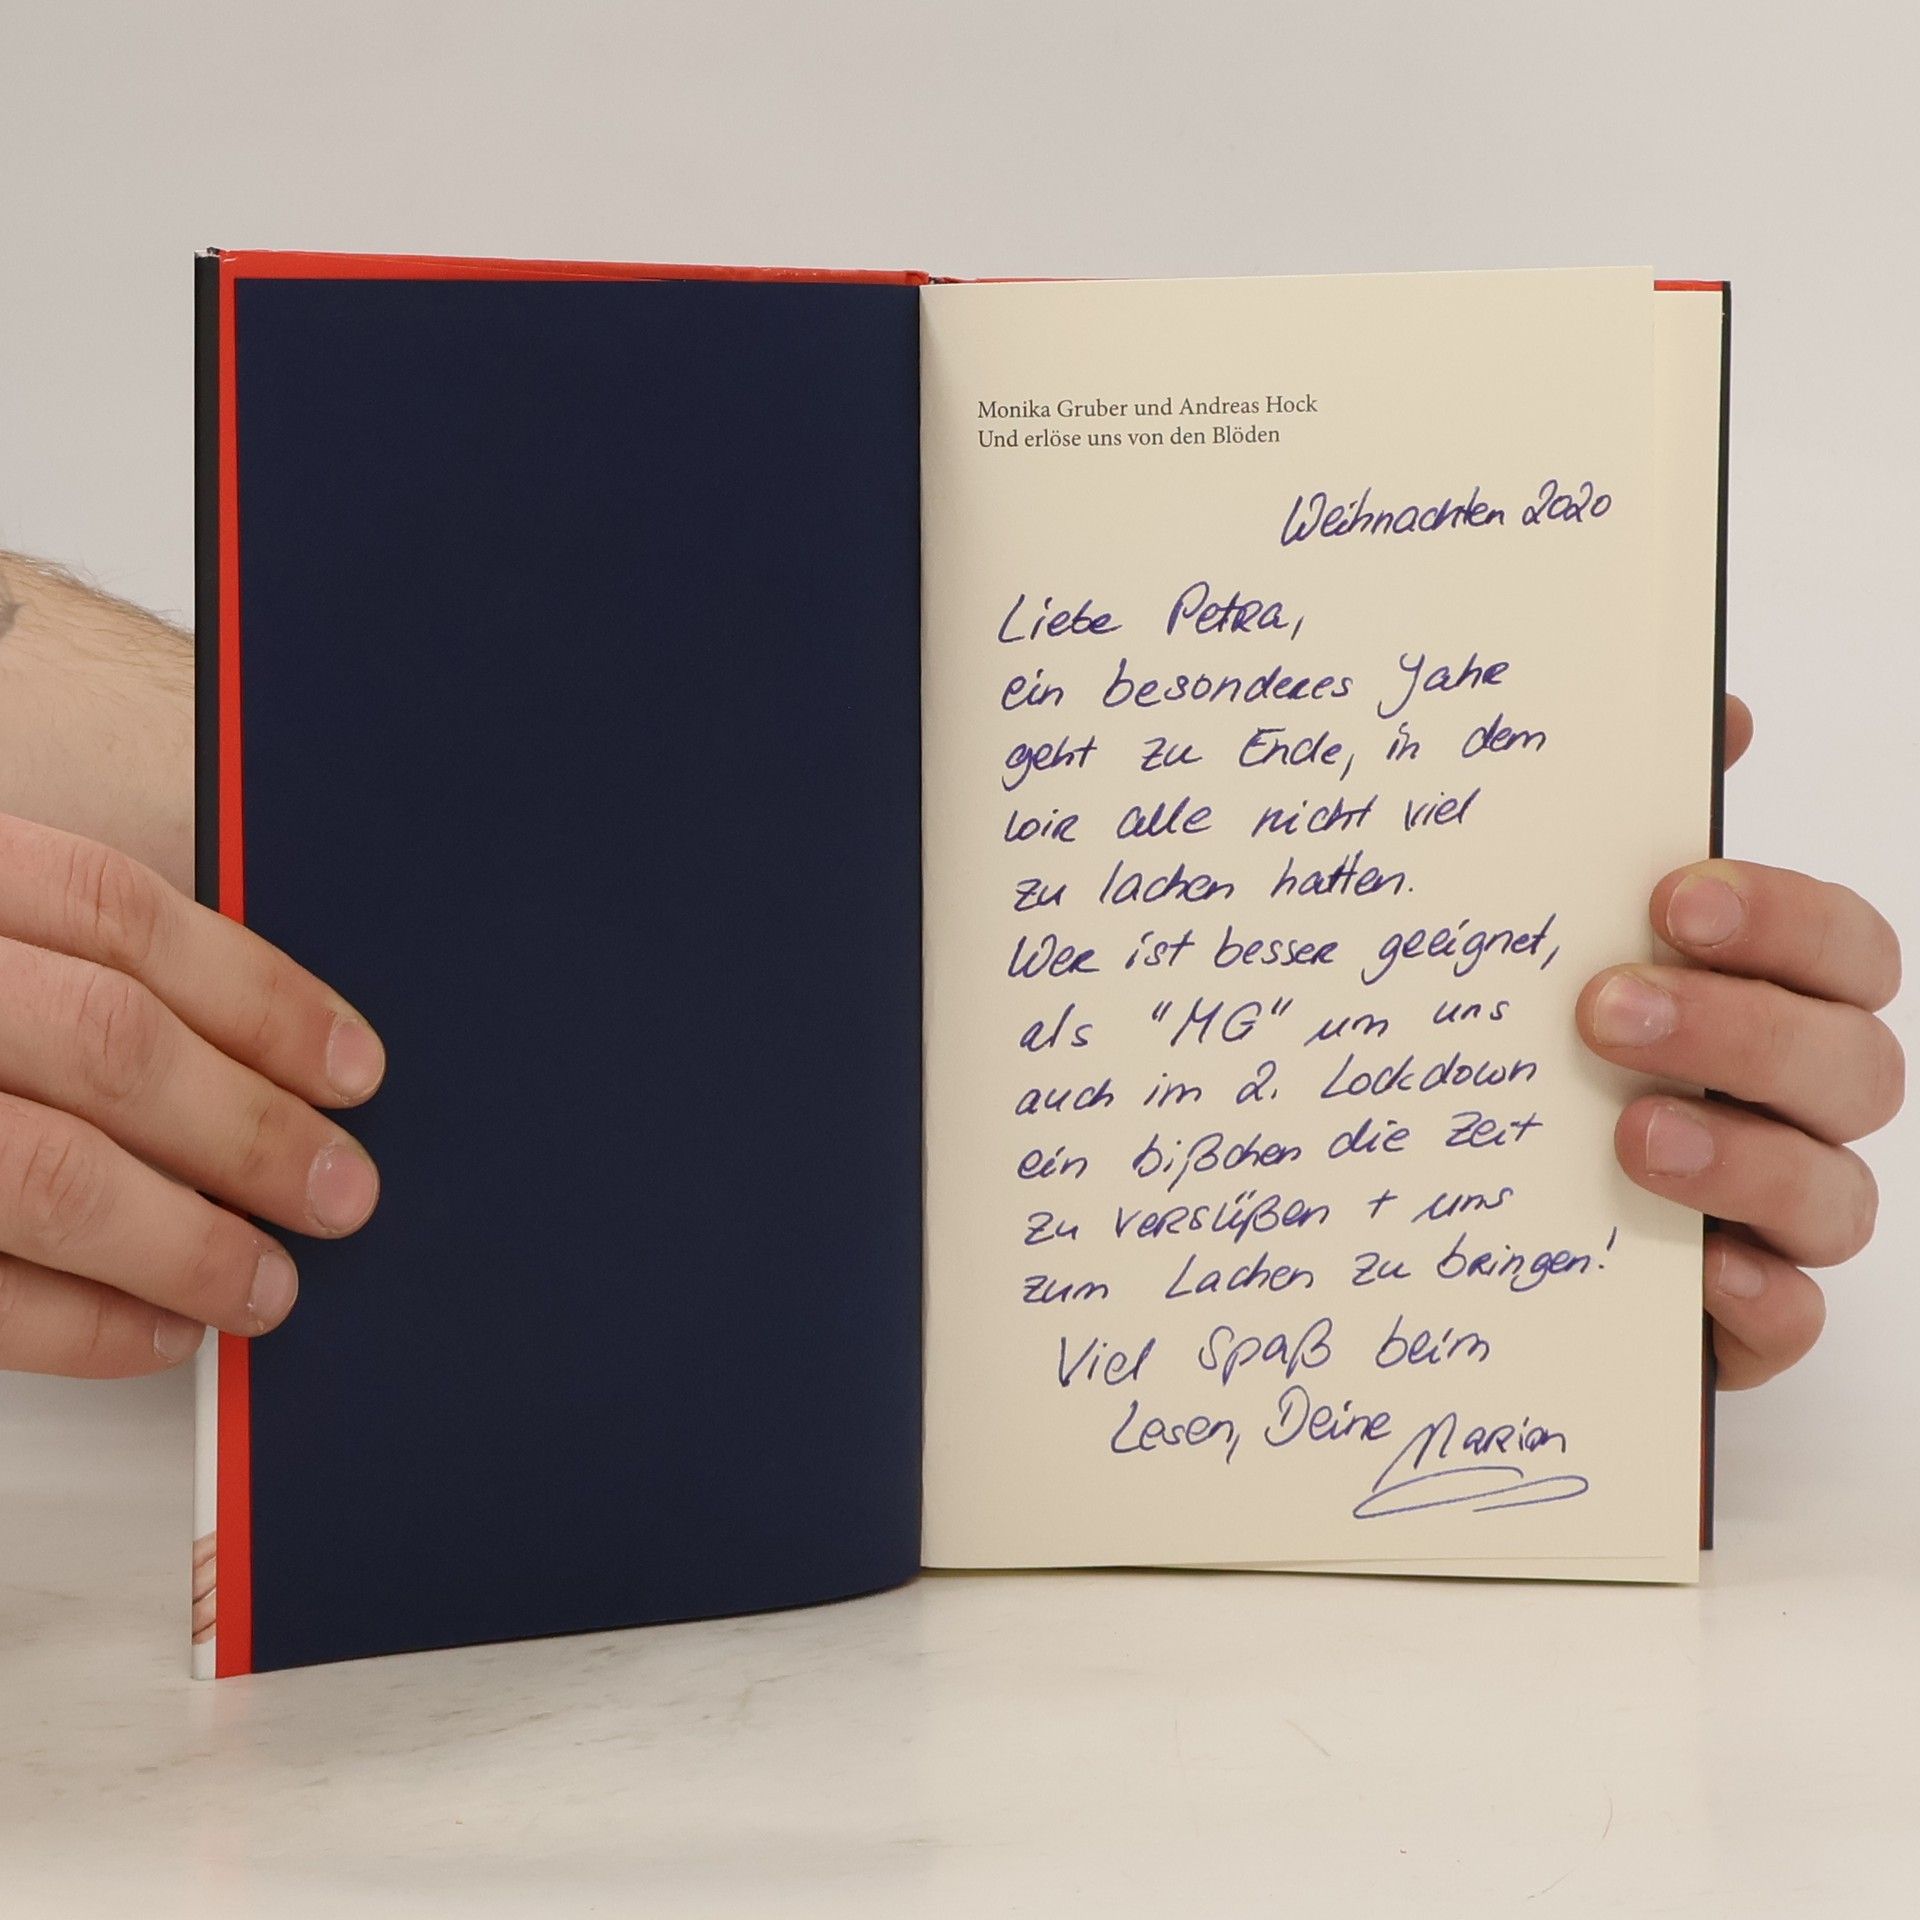 Monika Gruber und Andreas Hock
Und erlöse uns von den Blöden
Weihnachten 2020
Liebe Petra,
ein besonderes Jahr
geht zu Ende, in dem
wir alle nicht viel
zu lachen hatten.
Wer ist besser geeignet,
als "MG" um uns
auch im 2. Lockdown
ein bißchen die Zeit
zu versüßen + uns
zum Lachen zu bringen!
Viel Spaß beim
Lesen, Deine Marion